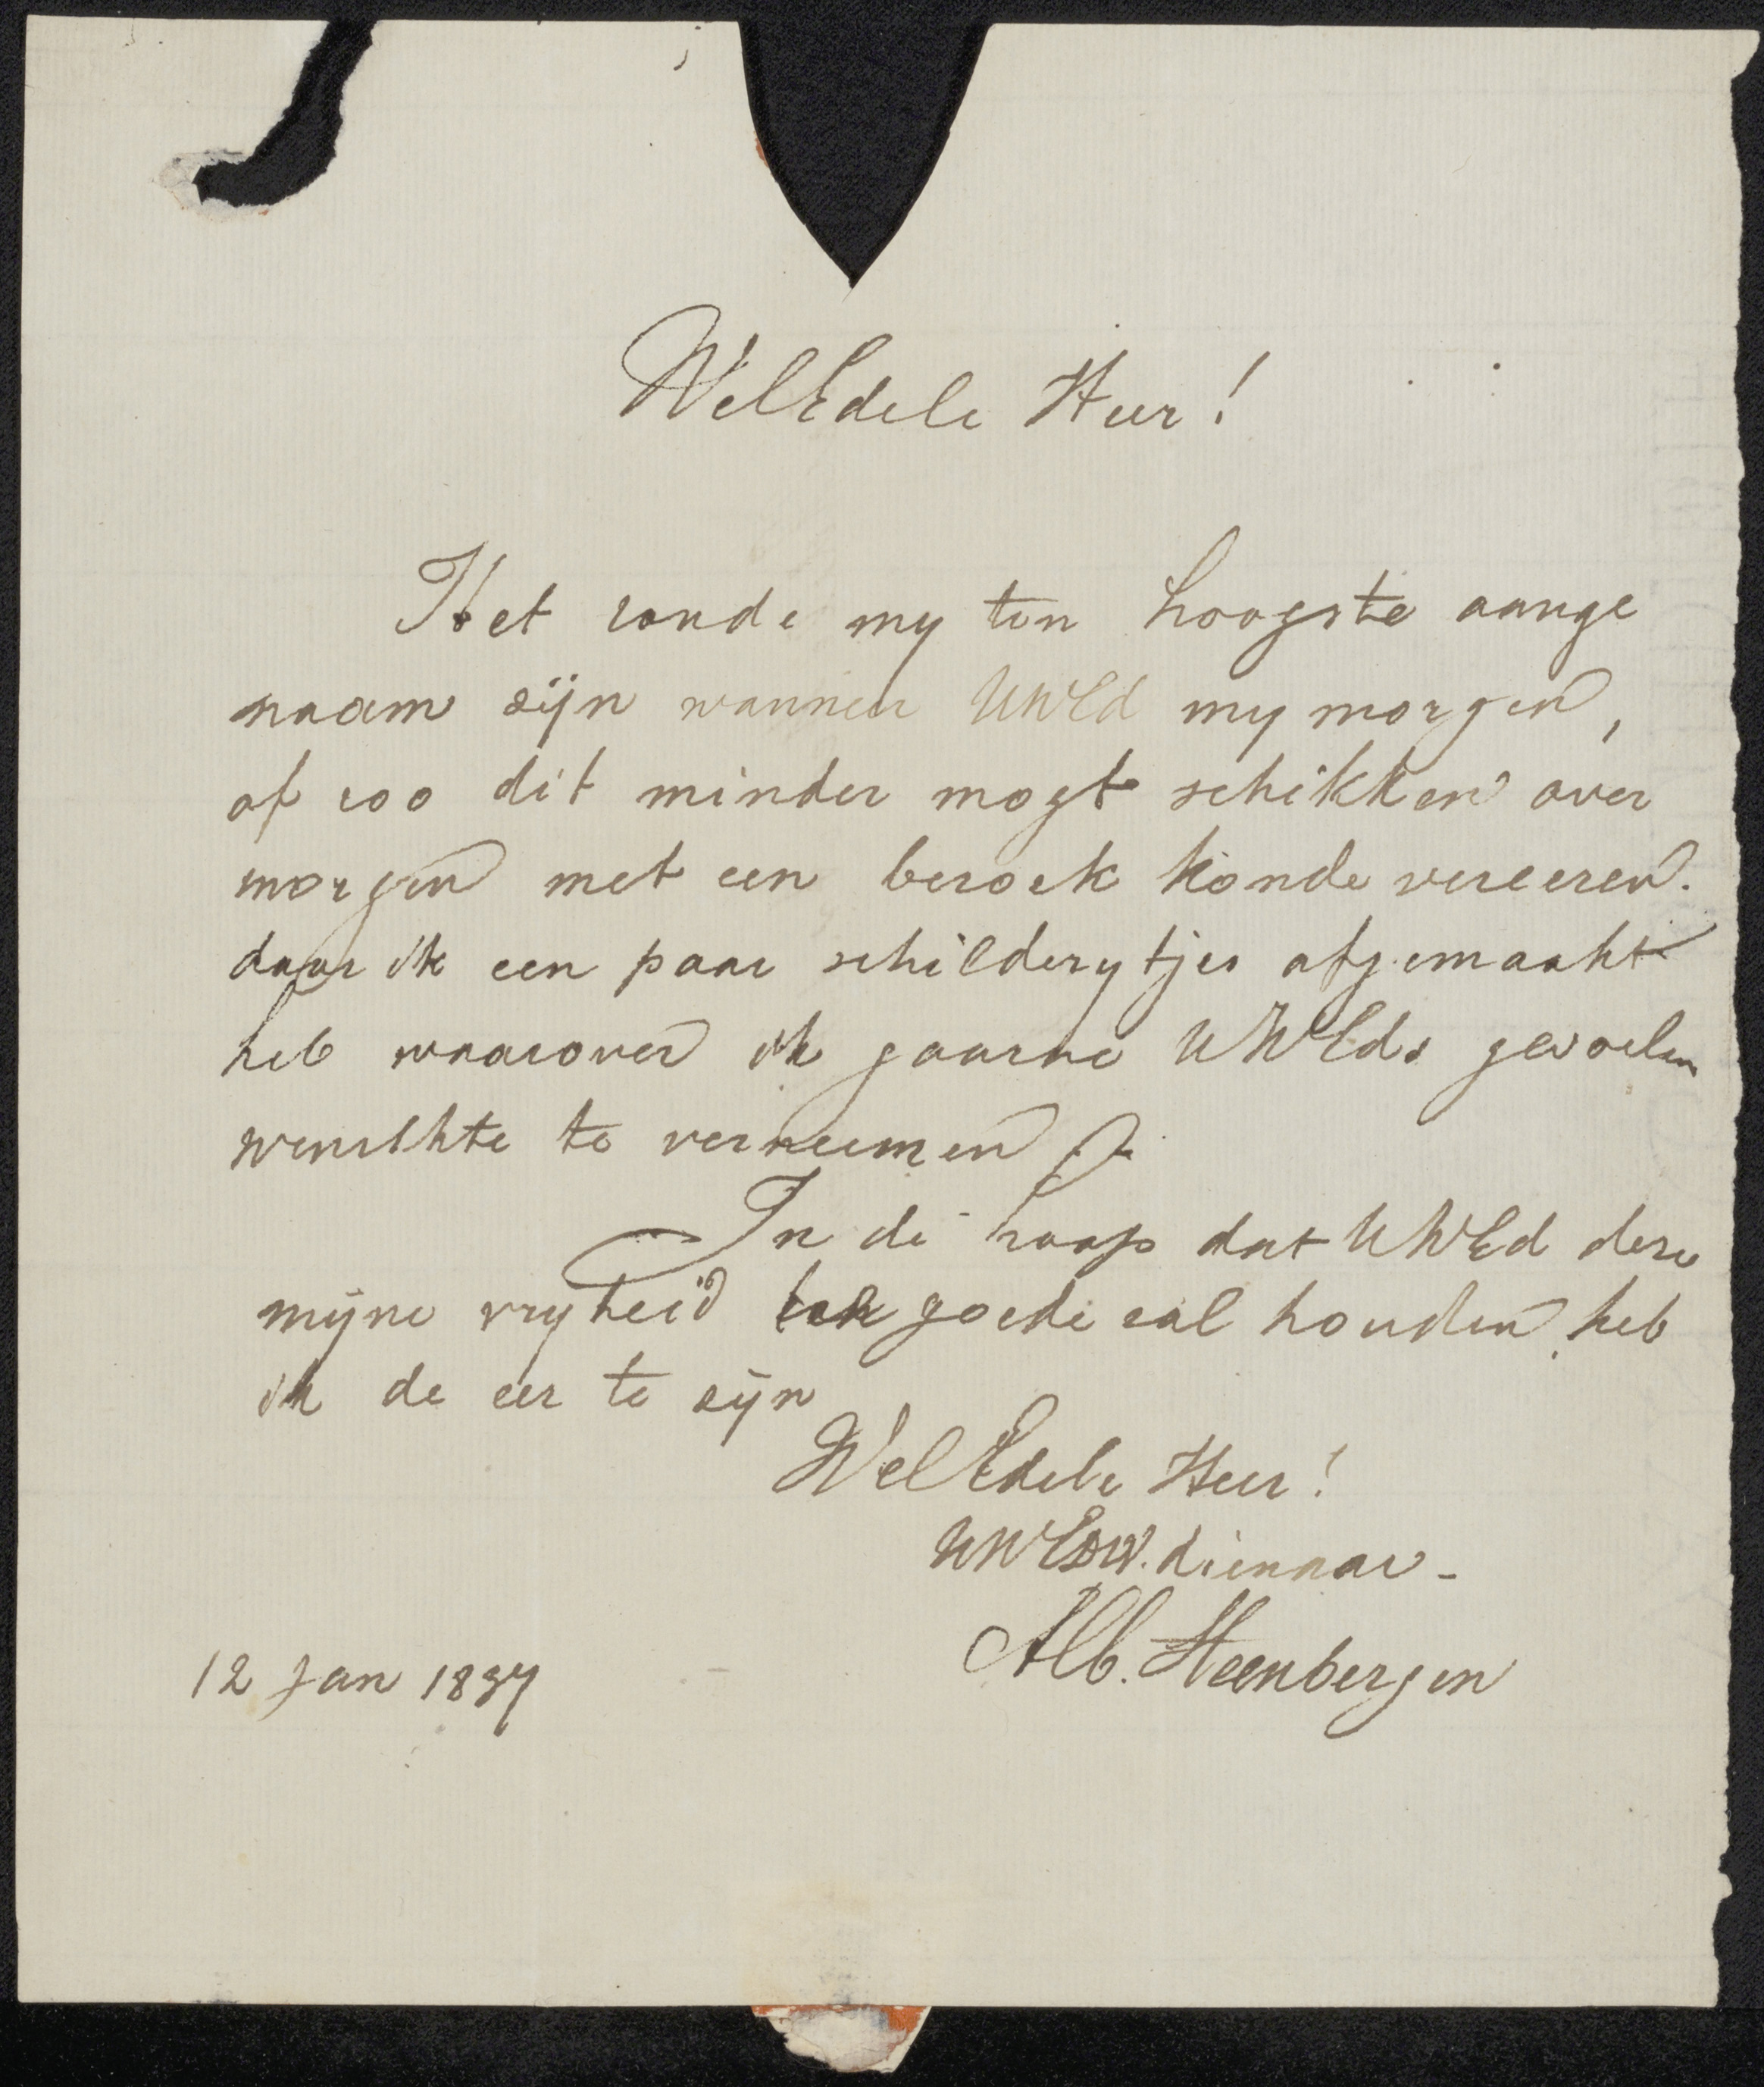 WelEdele Heer!
Het zoude my ten hoogste aange
naam zijn wanneer UWEd my morgen,
of zoo dit minder mogt schikken over
morgen met een bezoek konde vereeren.
daar ik een paar schilderytjes afgemaakt
heb waarover ik gaarne UWEds gevoelen
wenschte te verneemen
In de hoop dat UWEd deze
mijne vryheid ten goede zal houden, heb
ik de eer te zijn
WelEdele Heer!
UWEDW. dienaar -
Alb. Steenbergen
12 Jan 1837